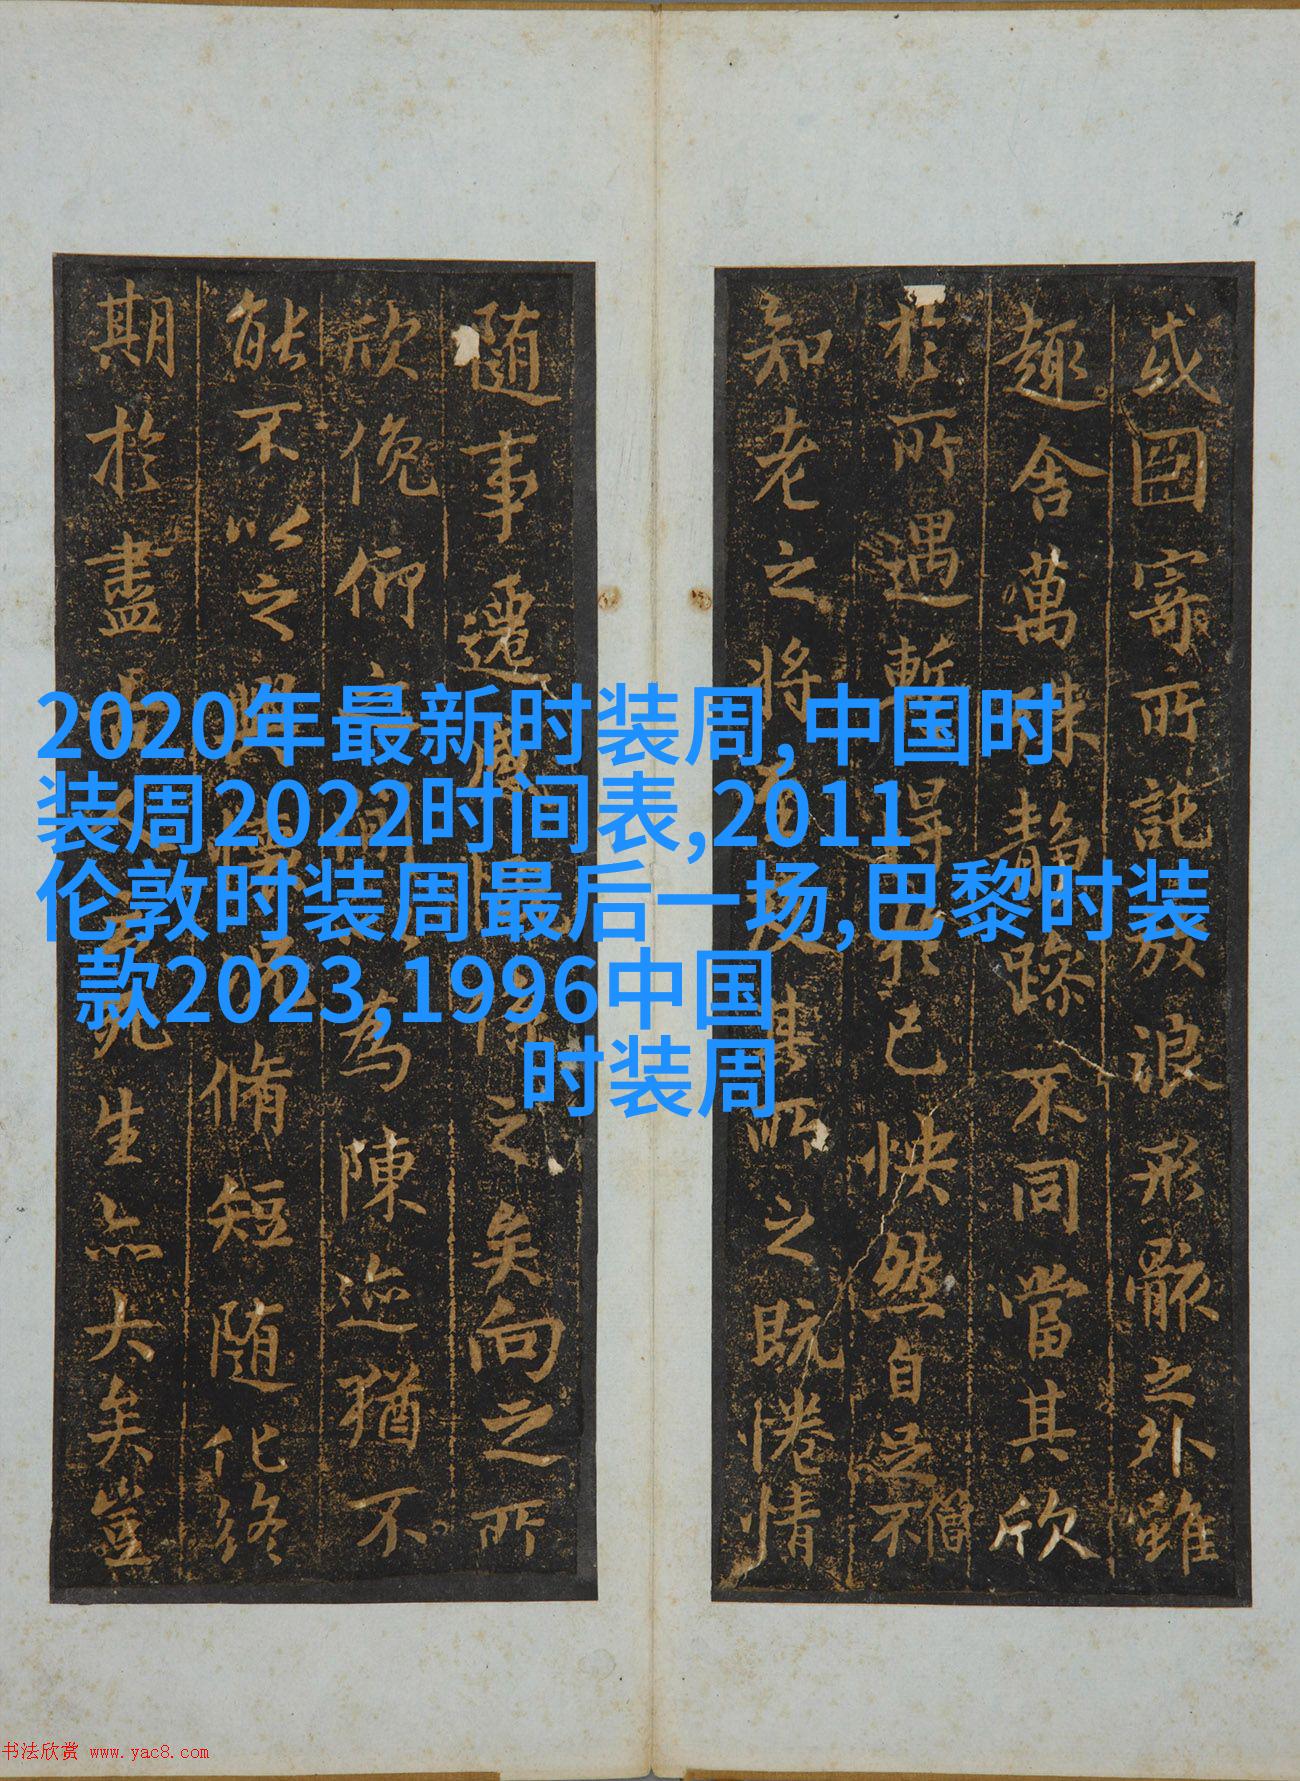 或因寄所託放浪形骸之外雖
趣舍萬殊靜躁不同當其欣
於所遇暫得於己怏然自足不
僧
知老之將及其所之既惓情
隨事遷感之矣向之所
欣俛仰之間為陳迹猶不
能不以之興懷況脩短隨化終
期於盡死生亦大矣豈
2020年最新时装周,中国时
装周2022时间表,2011
伦敦时装周最后一场,巴黎时装
款2023,1996中国
时装周
书法欣赏 www.yac8.com